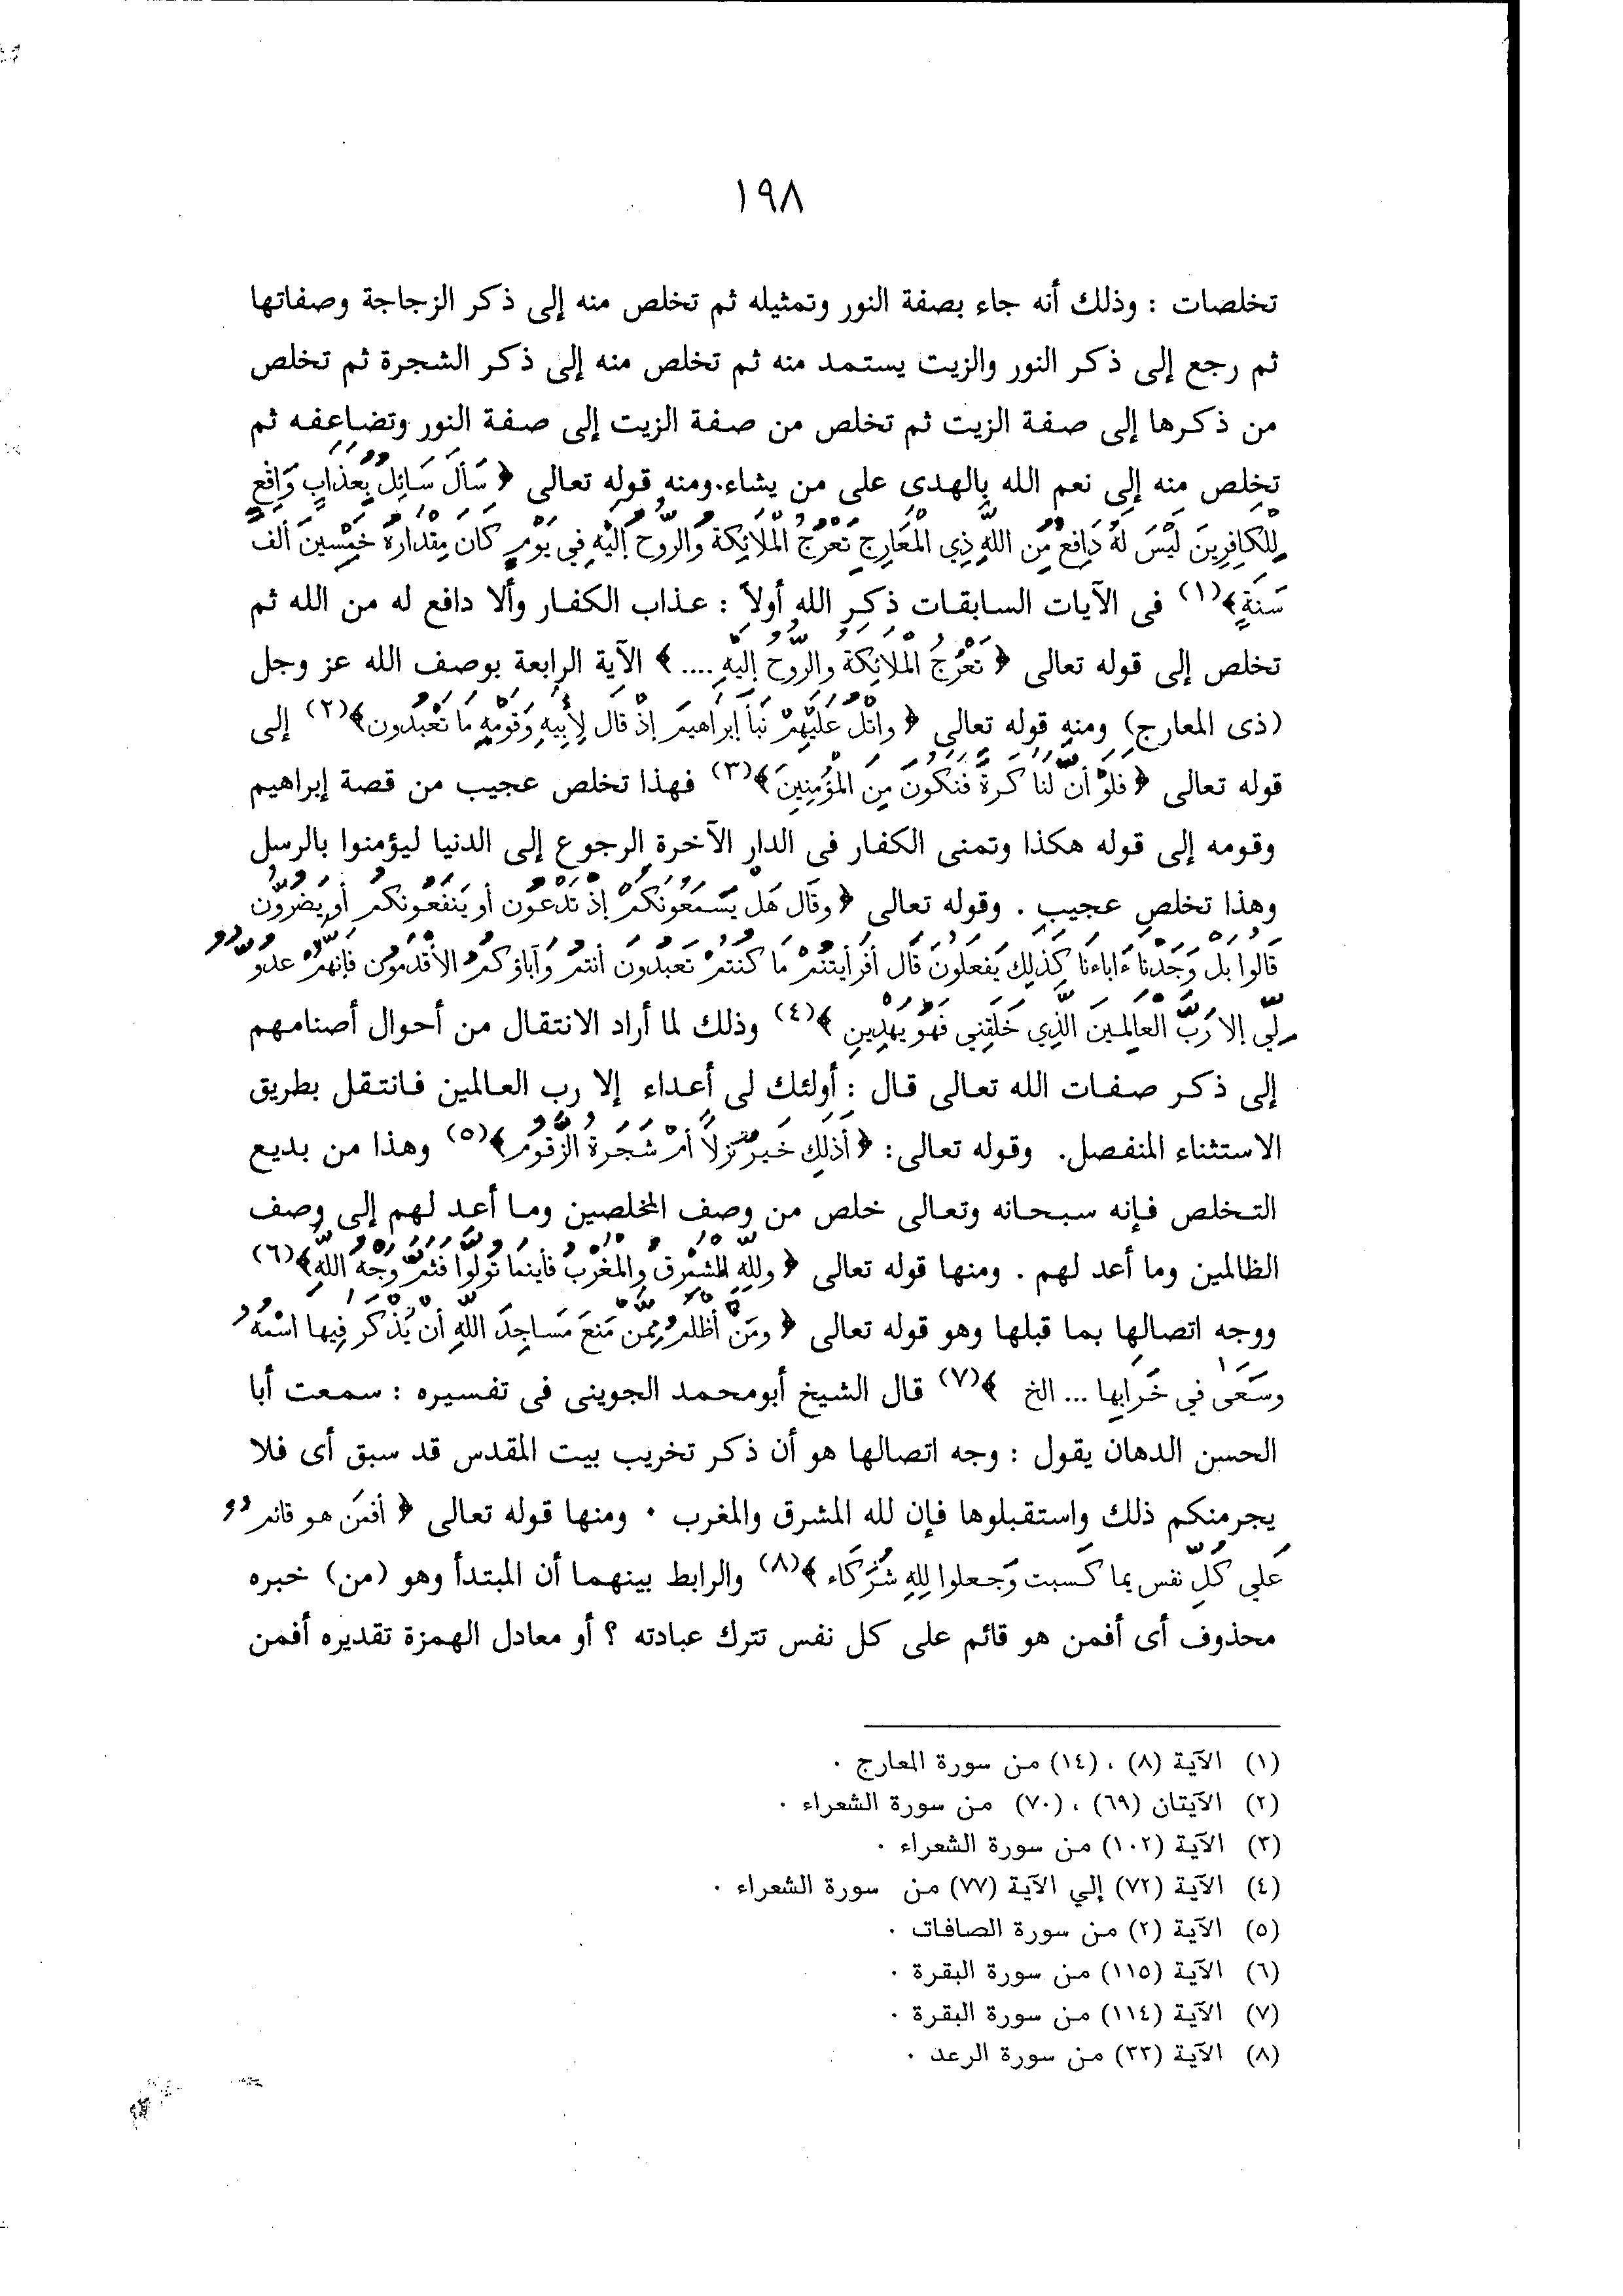 ١٩٨
تخلصات : وذلك أنه جاء بصفة النور وتمثيله ثم تخلص منه إلى ذكر الزجاجة وصفاتها
ثم رجع إلى ذكر النور والزيت يستمد منه ثم تخلص منه إلى ذكر الشجرة ثم تخلص
من ذكرها إلى صفة الزيت ثم تخلص من صفة الزيت إلى صفة النور وتضاعفه ثم
تخلص منه إلى نعم الله بالهدى على من يشاء.ومنه قوله تعالى ﴿ سَأَلَ سَائِلٌ بِعَذَابٍ وَاقِعٍ
لِّلْكَافِرِينَ لَيْسَ لَهُ دَافِعٌ مِّنَ اللَّهِ ذِي الْمَعَارِجِ تَعْرُجُ الْمَلَائِكَةُ وَالرُّوحُ إِلَيْهِ فِي يَوْمٍ كَانَ مِقْدَارُهُ خَمْسِينَ أَلْفَ
سَنَةٍ﴾(١) فى الآيات السابقات ذكر الله أولاً : عذاب الكفار وألا دافع له من الله ثم
تخلص إلى قوله تعالى ﴿ تَعْرُجُ الْمَلَائِكَةُ وَالرُّوحُ إِلَيْهِ .... ﴾ الآية الرابعة بوصف الله عز وجل
(ذى المعارج) ومنه قوله تعالى ﴿ وَاتْلُ عَلَيْهِمْ نَبَأَ إِبْرَاهِيمَ إِذْ قَالَ لِأَبِيهِ وَقَوْمِهِ مَا تَعْبُدُونَ﴾(٢) إلى
قوله تعالى ﴿ فَلَوْ أَنَّ لَنَا كَرَّةً فَنَكُونَ مِنَ الْمُؤْمِنِينَ﴾(٣) فهذا تخلص عجيب من قصة إبراهيم
وقومه إلى قوله هكذا وتمنى الكفار فى الدار الآخرة الرجوع إلى الدنيا ليؤمنوا بالرسل
وهذا تخلص عجيب . وقوله تعالى ﴿ وقَالَ هَلْ يَسْمَعُونَكُمْ إِذْ تَدْعُونَ أَوْ يَنفَعُونَكُمْ أَوْ يَضُرُّونَ
قَالُوا بَلْ وَجَدْنَا ءَابَاءَنَا كَذَلِكَ يَفْعَلُونَ قَالَ أَفَرَأَيْتُمْ مَا كُنتُمْ تَعْبُدُونَ أَنتُمْ وَآبَاؤُكُمُ الأَقْدَمُونَ فَإِنَّهُمْ عَدُوٌّ
لِّي إِلَّا رَبَّ الْعَالَمِينَ الَّذِي خَلَقَنِي فَهُوَ يَهْدِينِ ﴾(٤) وذلك لما أراد الانتقال من أحوال أصنامهم
إلى ذكر صفات الله تعالى قال : أولئك لى أعداء إلا رب العالمين فانتقل بطريق
الاستثناء المنفصل. وقوله تعالى: ﴿ أَذَلِكَ خَيْرٌ نُّزُلًا أَمْ شَجَرَةُ الزَّقُّومِ﴾(٥) وهذا من بديع
التخلص فإنه سبحانه وتعالى خلص من وصف المخلصين وما أعد لهم إلى وصف
الظالمين وما أعد لهم . ومنها قوله تعالى ﴿ وَلِلَّهِ الْمَشْرِقُ وَالْمَغْرِبُ فَأَيْنَمَا تُوَلُّوا فَثَمَّ وَجْهُ اللَّهِ﴾(٦)
ووجه اتصالها بما قبلها وهو قوله تعالى ﴿ وَمَنْ أَظْلَمُ مِمَّن مَّنَعَ مَسَاجِدَ اللَّهِ أَنْ يُذْكَرَ فِيهَا اسْمُهُ
وَسَعَى فِي خَرَابِهَا ... الخ ﴾(٧) قال الشيخ أبومحمد الجوينى فى تفسيره : سمعت أبا
الحسن الدهان يقول : وجه اتصالها هو أن ذكر تخريب بيت المقدس قد سبق أى فلا
يجرمنكم ذلك واستقبلوها فإن لله المشرق والمغرب . ومنها قوله تعالى ﴿ أَفَمَن هو قائمٌ
عَلَى كُلِّ نفس بما كَسبت وَجعلوا لِلهِ شُرَكَاء ﴾(٨) والرابط بينهما أن المبتدأ وهو (من) خبره
محذوف أى أفمن هو قائم على كل نفس تترك عبادته ؟ أو معادل الهمزة تقديره أفمن
(١) الآية (٨) ، (١٤) من سورة المعارج .
(٢) الآيتان (٦٩) ، (٧٠) من سورة الشعراء .
(٣) الآية (١٠٢) من سورة الشعراء .
(٤) الآية (٧٢) إلي الآية (٧٧) من سورة الشعراء .
(٥) الآية (٢) من سورة الصافات .
(٦) الآية (١١٥) من سورة البقرة .
(٧) الآية (١١٤) من سورة البقرة .
(٨) الآية (٣٣) من سورة الرعد .